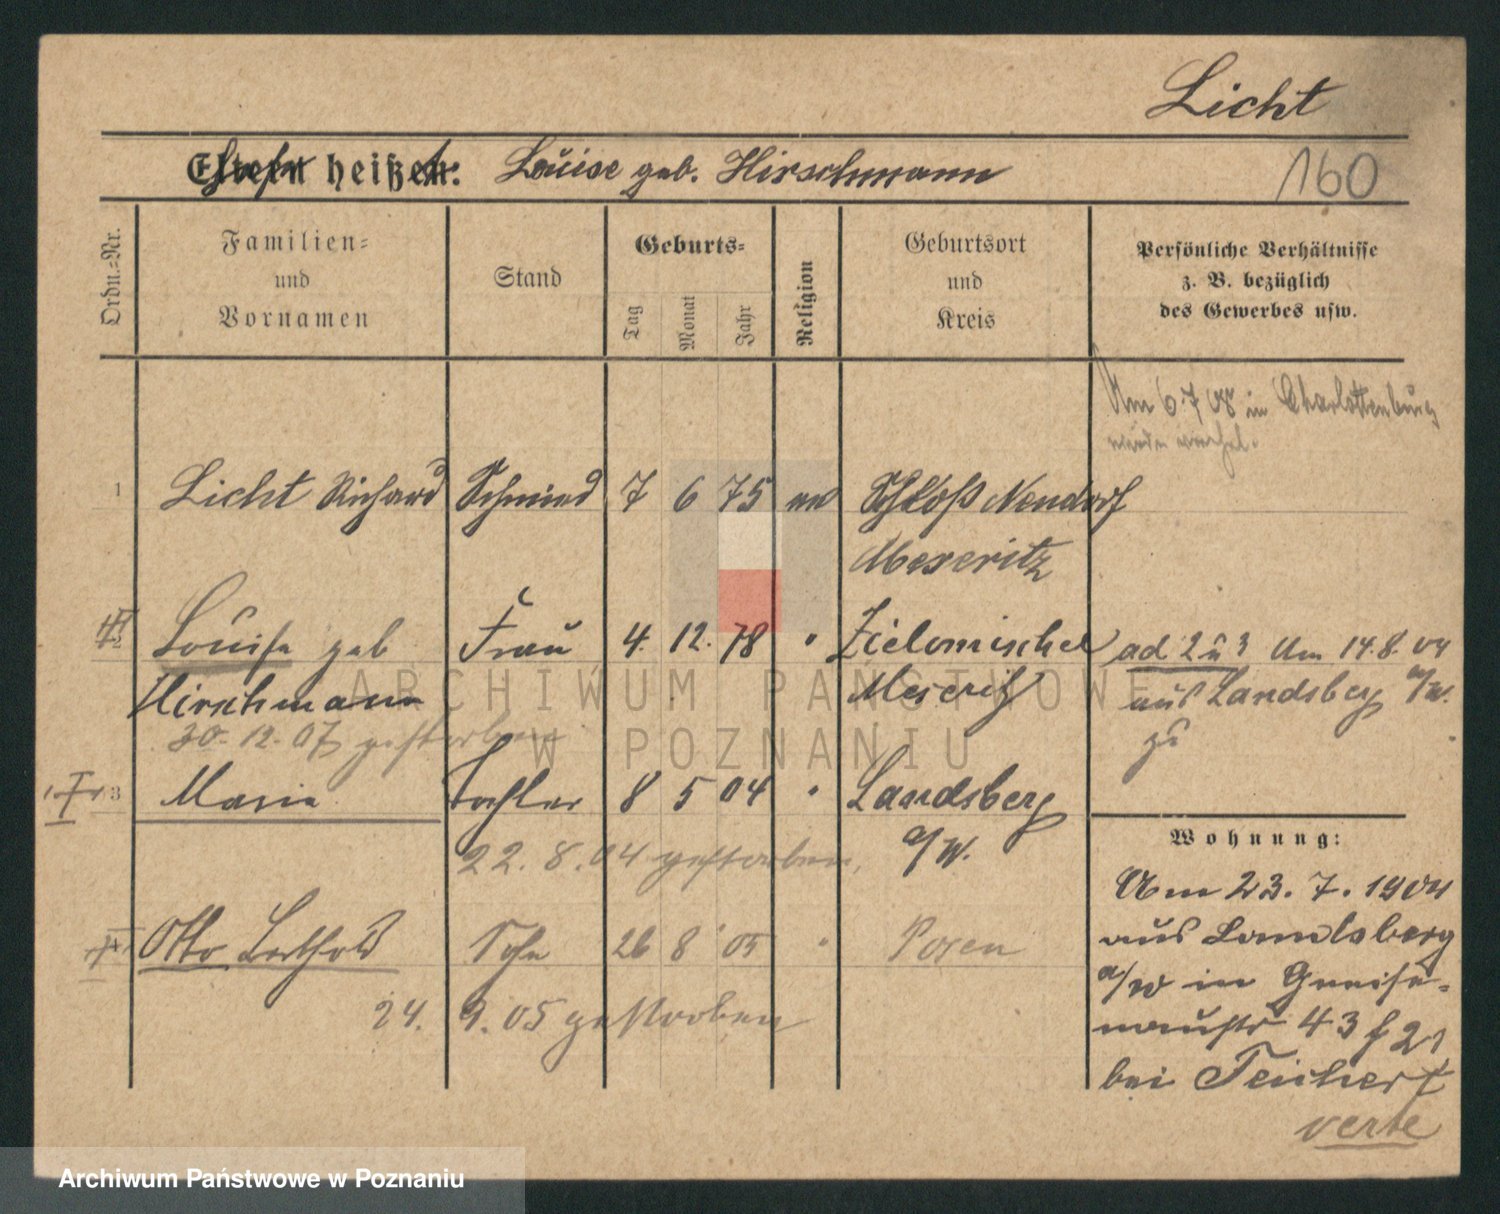 Licht
160
Eltern heißen: Louise geb. Hirschmann
Ordn.=Nr.
Familien=
und
Vornamen
Stand
Geburts=
Tag
Monat
Jahr
Religion
Geburtsort
und
Kreis
Persönliche Verhältnisse
z. B. bezüglich
des Gewerbes usw.
Am 6.7.08 in Charlottenburg
1 Licht Richard Schmied 7 6 75 ev Schloß Neudorf
Meseritz
2 Louise geb Frau 4. 12. 78 " Zielomischel
Hirschmann Meseritz
30.12.07 gestorben
ad 2 u 3 Am 14.8.04
aus Landsberg a/W.
zu
3 Marie Tochter 8 5 04 " Landsberg
a/W.
22. 8. 04 gestorben,
Otto Berthold Sohn 26 8 05 " Posen
24. 9. 05 gestorben
Wohnung:
Am 23. 7. 1904
aus Landsberg
a/W in Gneise-
naustr 43 f 21
bei Teichert
verte
ARCHIWUM PAŃSTWOWE
W POZNANIU
Archiwum Państwowe w Poznaniu